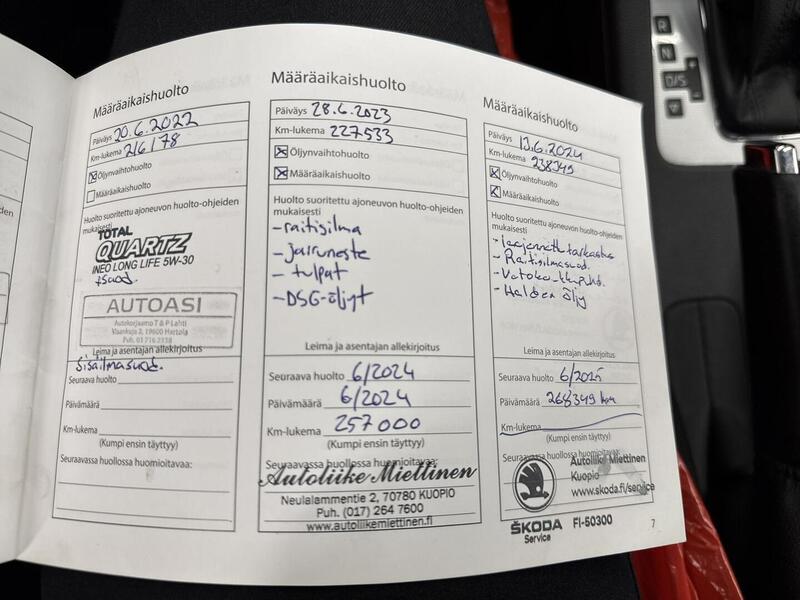 Määräaikaishuolto
Päiväys 20.6.2022
Km-lukema 216178
Öljynvaihtohuolto
Määräaikaishuolto
Huolto suoritettu ajoneuvon huolto-ohjeiden
mukaisesti
TOTAL
QUARTZ
INEO LONG LIFE 5W-30
+suod.
AUTOASI
Autokorjaamo T & P Lahti
19600 Hartola
Puh. 03 716 2138
Leima ja asentajan allekirjoitus
Sisäilmasuod.
Seuraava huolto
Päivämäärä
Km-lukema
(Kumpi ensin täyttyy)
Seuraavassa huollossa huomioitavaa:
Määräaikaishuolto
Päiväys 28.6.2023
Km-lukema 227533
Öljynvaihtohuolto
Määräaikaishuolto
Huolto suoritettu ajoneuvon huolto-ohjeiden
mukaisesti
-raitisilma
-jarruneste
-tulpat
-DSG-öljyt
Leima ja asentajan allekirjoitus
Seuraava huolto 6/2024
Päivämäärä 6/2024
Km-lukema 257000
(Kumpi ensin täyttyy)
Seuraavassa huollossa huomioitavaa:
Autoliike Miettinen
Neulalammentie 2, 70780 KUOPIO
Puh. (017) 264 7600
www.autoliikemiettinen.fi
Määräaikaishuolto
Päiväys 13.6.2024
Km-lukema 238349
Öljynvaihtohuolto
Määräaikaishuolto
Huolto suoritettu ajoneuvon huolto-ohjeiden
mukaisesti
-laajennettu tarkastus
-Raitisilmasuod.
-Haldex öljy
Leima ja asentajan allekirjoitus
Seuraava huolto 6/2025
Päivämäärä 268349 km
Km-lukema
(Kumpi ensin täyttyy)
Seuraavassa huollossa huomioitavaa:
Autoliike Miettinen
Kuopio
www.skoda.fi/service
ŠKODA FI-50300
Service
7
R
N
D/S